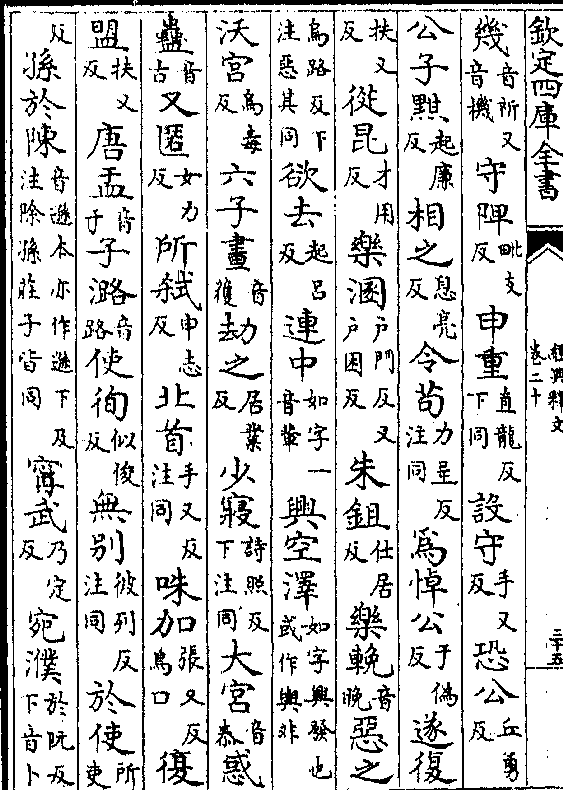 欽定四庫全書
經典釋文
卷二十
幾音所又音機守陴毗支反申重直龍反下同設守手又反恐公丘勇反
公子黚起廉反相之息亮反令苟力呈反注同為悼公于偽反遂復
扶又反從昆才用反樂溷戶門反又戶困反朱鉏仕居反樂輓音晚惡之
烏路反下注惡其同欲去起呂反連中如字一音輩興空澤如字興發也或作與非
沃宮烏毒反六子畫音獲劫之居業反少寢詩照反下注同大宮音泰惑
蠱音古又匿女力反所弒申志反北首手又反注同咮加張又反鳥口復
盟扶又反唐盂音于子潞音路使徇似俊反無別彼列反注同於使所吏
反孫於陳音遜本亦作遜下及注除孫莊子皆同甯武乃定反宛濮於阮反下音卜